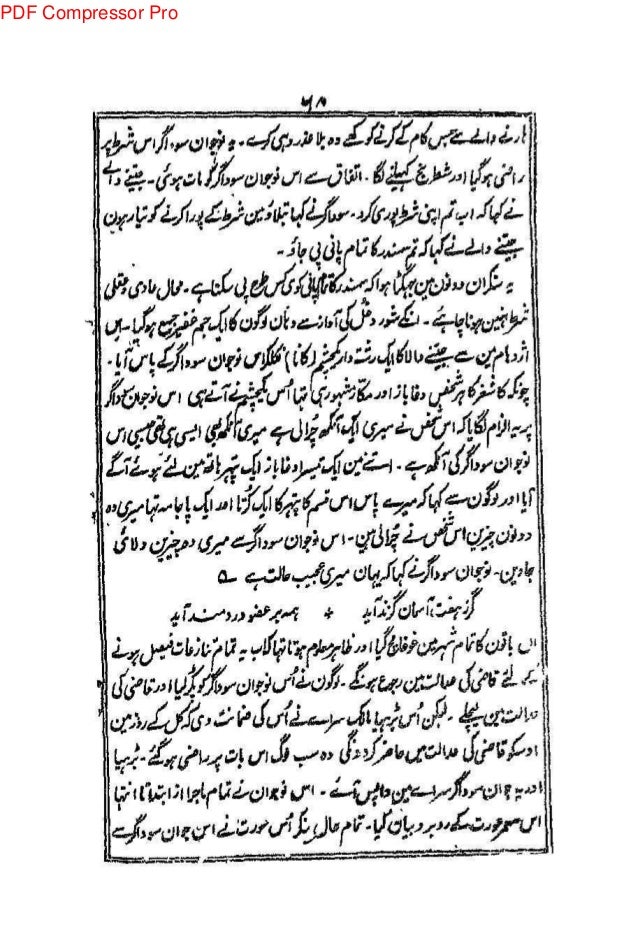 PDF Compressor Pro
۶۸
ہارنے والے سے جس کام کے کرنے کو کہے وہ بلا عذر وہی کرے۔ یہ نوجوان سوداگر اس شرط پر
راضی ہوگیا اور شطرنج کہیلنے لگا۔ اتفاق سے اس نوجوان سوداگر کو مات ہوئی۔ جیتنے والے
نے کہا کہ اب تم اپنی شرط پوری کرو۔ سوداگر نے کہا بتلاؤ مین شرط کے پورا کرنے کو تیار ہون
جیتنے والے نے کہا کہ تم سمندر کا تمام پانی پی جاؤ۔
یہ سنکر ان دونون مین جہگڑا ہوا کہ سمندر کا تمام پانی کوئی کس طرح پی سکتا ہے۔ محال عادی و عقلی
شرط نہین ہونا چاہئے۔ انکے شور و غل کی آواز سے وہان لوگون کا ایک جم غفیر جمع ہوگیا۔ اس
اژدہام مین سے جیتنے والا کا ایک رشتہ دار یکچشم (کانا) نکلکر اس نوجوان سوداگر کے پاس آیا۔
چونکہ کاشغر کا ہر شخص دغاباز اور مکار مشہور ہی تہا اس یکچشم نے آتے ہی اس نوجوان سوداگر
پر یہ الزام لگایا کہ اس شخص نے میری ایک آنکھ چرالی ہے میری آنکھ بھی ایسی ہی تھی جیسی اس
نوجوان سوداگر کی آنکھ ہے۔ اتنے مین ایک تیسرا دغاباز ایک پتہر ہاتھ مین لئے ہوئے آگے
آیا اور لوگون سے کہا کہ میرے پاس اس قسم کا پتہر کا ایک کرتا اور ایک پاجامہ تہا میری وہ
دونون چیزین اس شخص نے چرالی ہین۔ اس نوجوان سوداگر سے میری وہ چیزین دلائی
جاوین۔ نوجوان سوداگر نے کہا کہ یہان میری عجیب حالت ہے ؎
گر ز ہفت آسمان گزند آید ٭ ہمہ بر عضو دردمند آید
ان باتون کا تمام شہر مین غوغا مچ گیا اور ظاہر معلوم ہوتا تہا کہ اب یہ تمام تنازعات فیصل ہونے
کے لئے قاضی کی عدالت مین رجوع ہونگے۔ لوگون نے اس نوجوان سوداگر کو پکڑ لیا اور قاضی کی
عدالت مین لیچلے۔ لیکن اس بڑہیا مالک سراے نے اس کی ضمانت دی کہ کل کے روز مین
اوسکو قاضی کی عدالت مین حاضر کردونگی وہ سب لوگ اس بات پر راضی ہوگئے۔ بڑہیا
اور یہ جوان سوداگر سراے مین واپس آئے۔ اس نوجوان نے تمام ماجرا از ابتدا تا انتہا
اس معمر عورت کے روبرو بیان کیا۔ تمام حال سنکر اس عورت نے اس جوان سوداگر سے